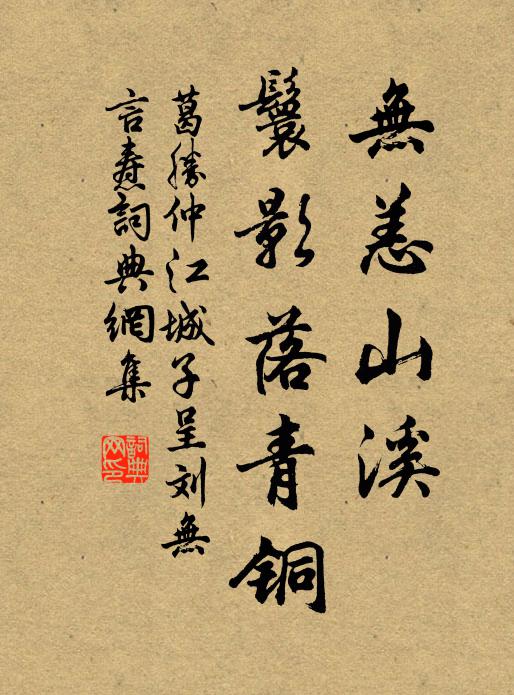 無恙山溪
鬟影落青铜
葛勝仲江城子呈刘無
言焘詞典網集
詞典网印